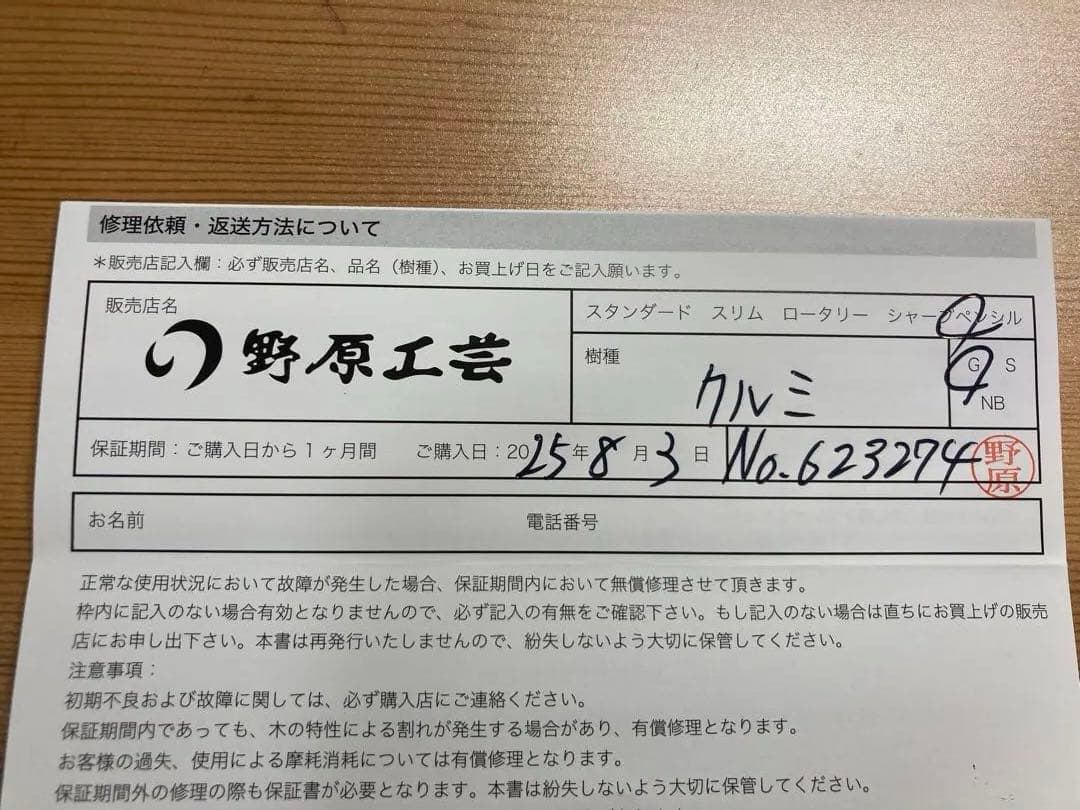 修理依頼・返送方法について
＊販売店記入欄：必ず販売店名、品名（樹種）、お買上げ日をご記入願います。
販売店名
野原工芸
スタンダード スリム ロータリー シャープペンシル
樹種
クルミ
G S
NB
保証期間：ご購入日から1ヶ月間 ご購入日：2025年8月3日 No.623274
野原
お名前 電話番号
正常な使用状況において故障が発生した場合、保証期間内において無償修理させて頂きます。
枠内に記入のない場合有効となりませんので、必ず記入の有無をご確認下さい。もし記入のない場合は直ちにお買上げの販売
店にお申し出下さい。本書は再発行いたしませんので、紛失しないよう大切に保管してください。
注意事項：
初期不良および故障に関しては、必ず購入店にご連絡ください。
保証期間内であっても、木の特性による割れが発生する場合があり、有償修理となります。
お客様の過失、使用による摩耗消耗については有償修理となります。
保証期間外の修理の際も保証書が必要となります。本書は紛失しないよう大切に保管してください。